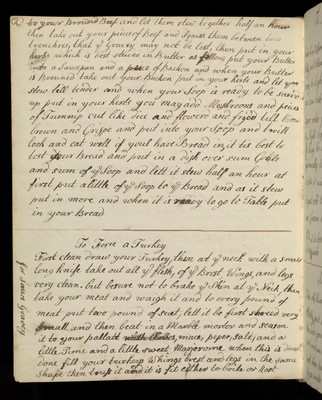 to your Browned Beef and let them stew together half an hour
then take out your pieces of Beef and Squees them between two
trenchers, that ye Gravey may not be lost, then put in your
herbs which is best stued in Butter as follows put your Butter
into a Sawspan and a piece of Backon and when your Butter
is Browned take out your Backon put in your herbs and let ym
stew till tender and when your Soop is ready to be sarved
up put in your herbs you may add Mushroons and peices
of Turnup cut like dice and flowerd and fried till brown
brown and Crispe and put into your Soop and it will
look and eat well if youl have Bread in it tis best to
tost your Bread and put in a dish over sum Coles
and sum of ye Soop and lett it stew half an hour at
first put a little of ye Soop to ye Bread and as it stew
put in more and when it is ready to go to Table put
in your Bread
To Force a Turkey
First clean draw your Turkey, then at ye neck with a small
long knife take out all ye flesh, of ye Brest Wings, and legs
very clean, but besure not to brake ye Skin at ye Neck, then
take your meat and waigh it and to every pound of
meat put two pound of suet, lett it be first shread very
small and then beat in a Marble mortor and season
it to your pallatt with Cloves, mace, piper, salt, and a
little Time and a little sweet Marjorome when this is done
done fill your turkeys Whings brest and legs in the same
shape then truss it and it is fit either to boile or Rost
for Gravey